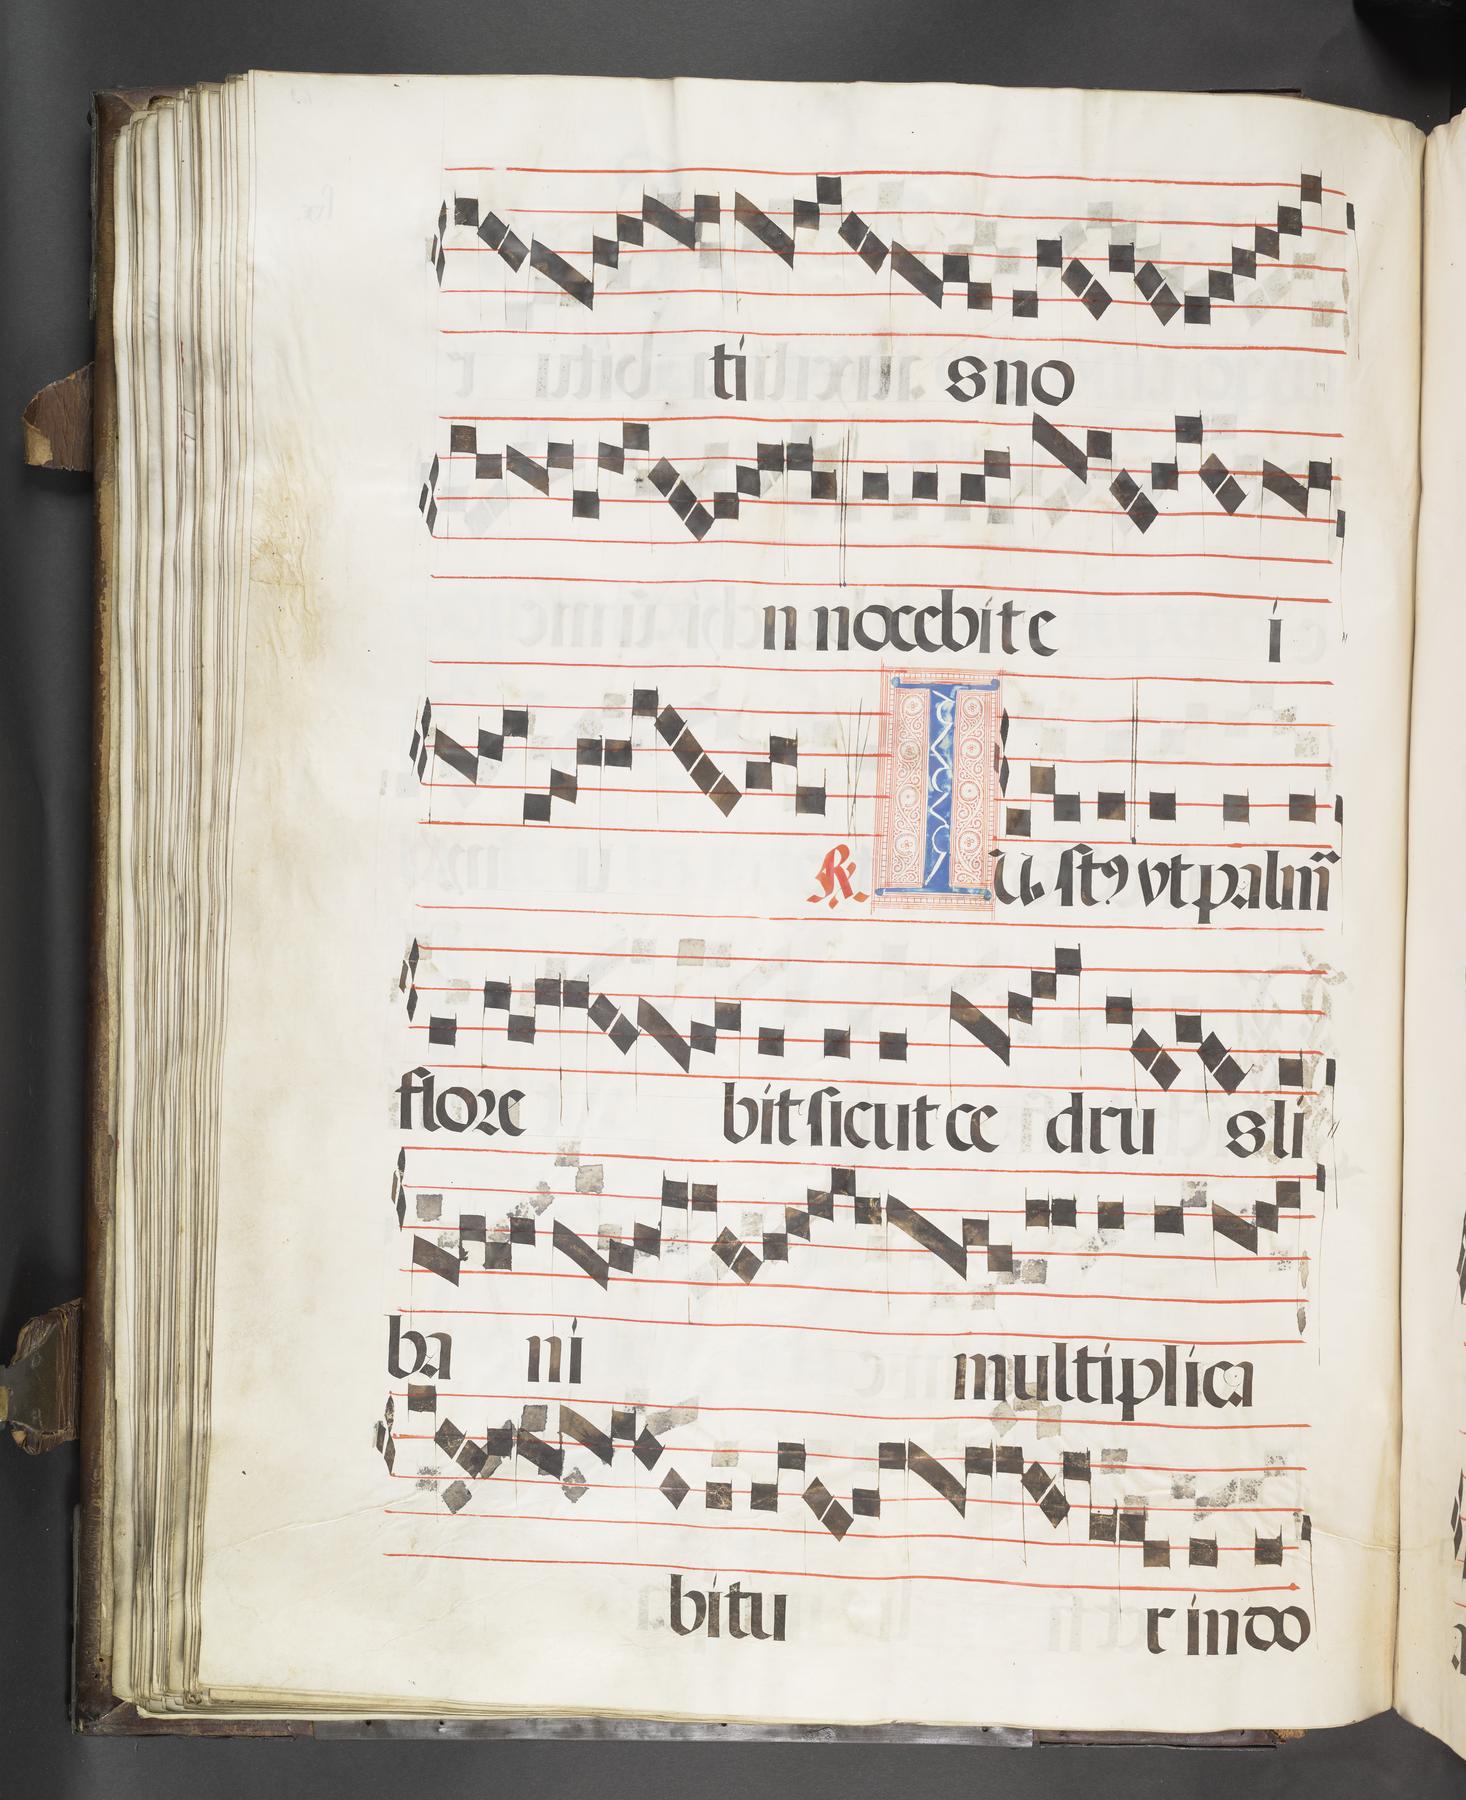 ti sno
n nocebit e i
R. Iustꝰ vt palm̃
flore bit sicut ce dru sli
ba ni multiplica
bitu r in do